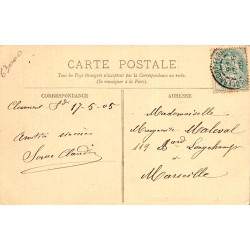 CARTE POSTALE
Tous les Pays étrangers n'acceptent pas la Correspondance au recto.
(Se renseigner à la Poste).
CORRESPONDANCE
17-5-05
Amitiés
ADRESSE
Mademoiselle
Marguerite Maleval
119 Bard Longchamp
à
Marseille